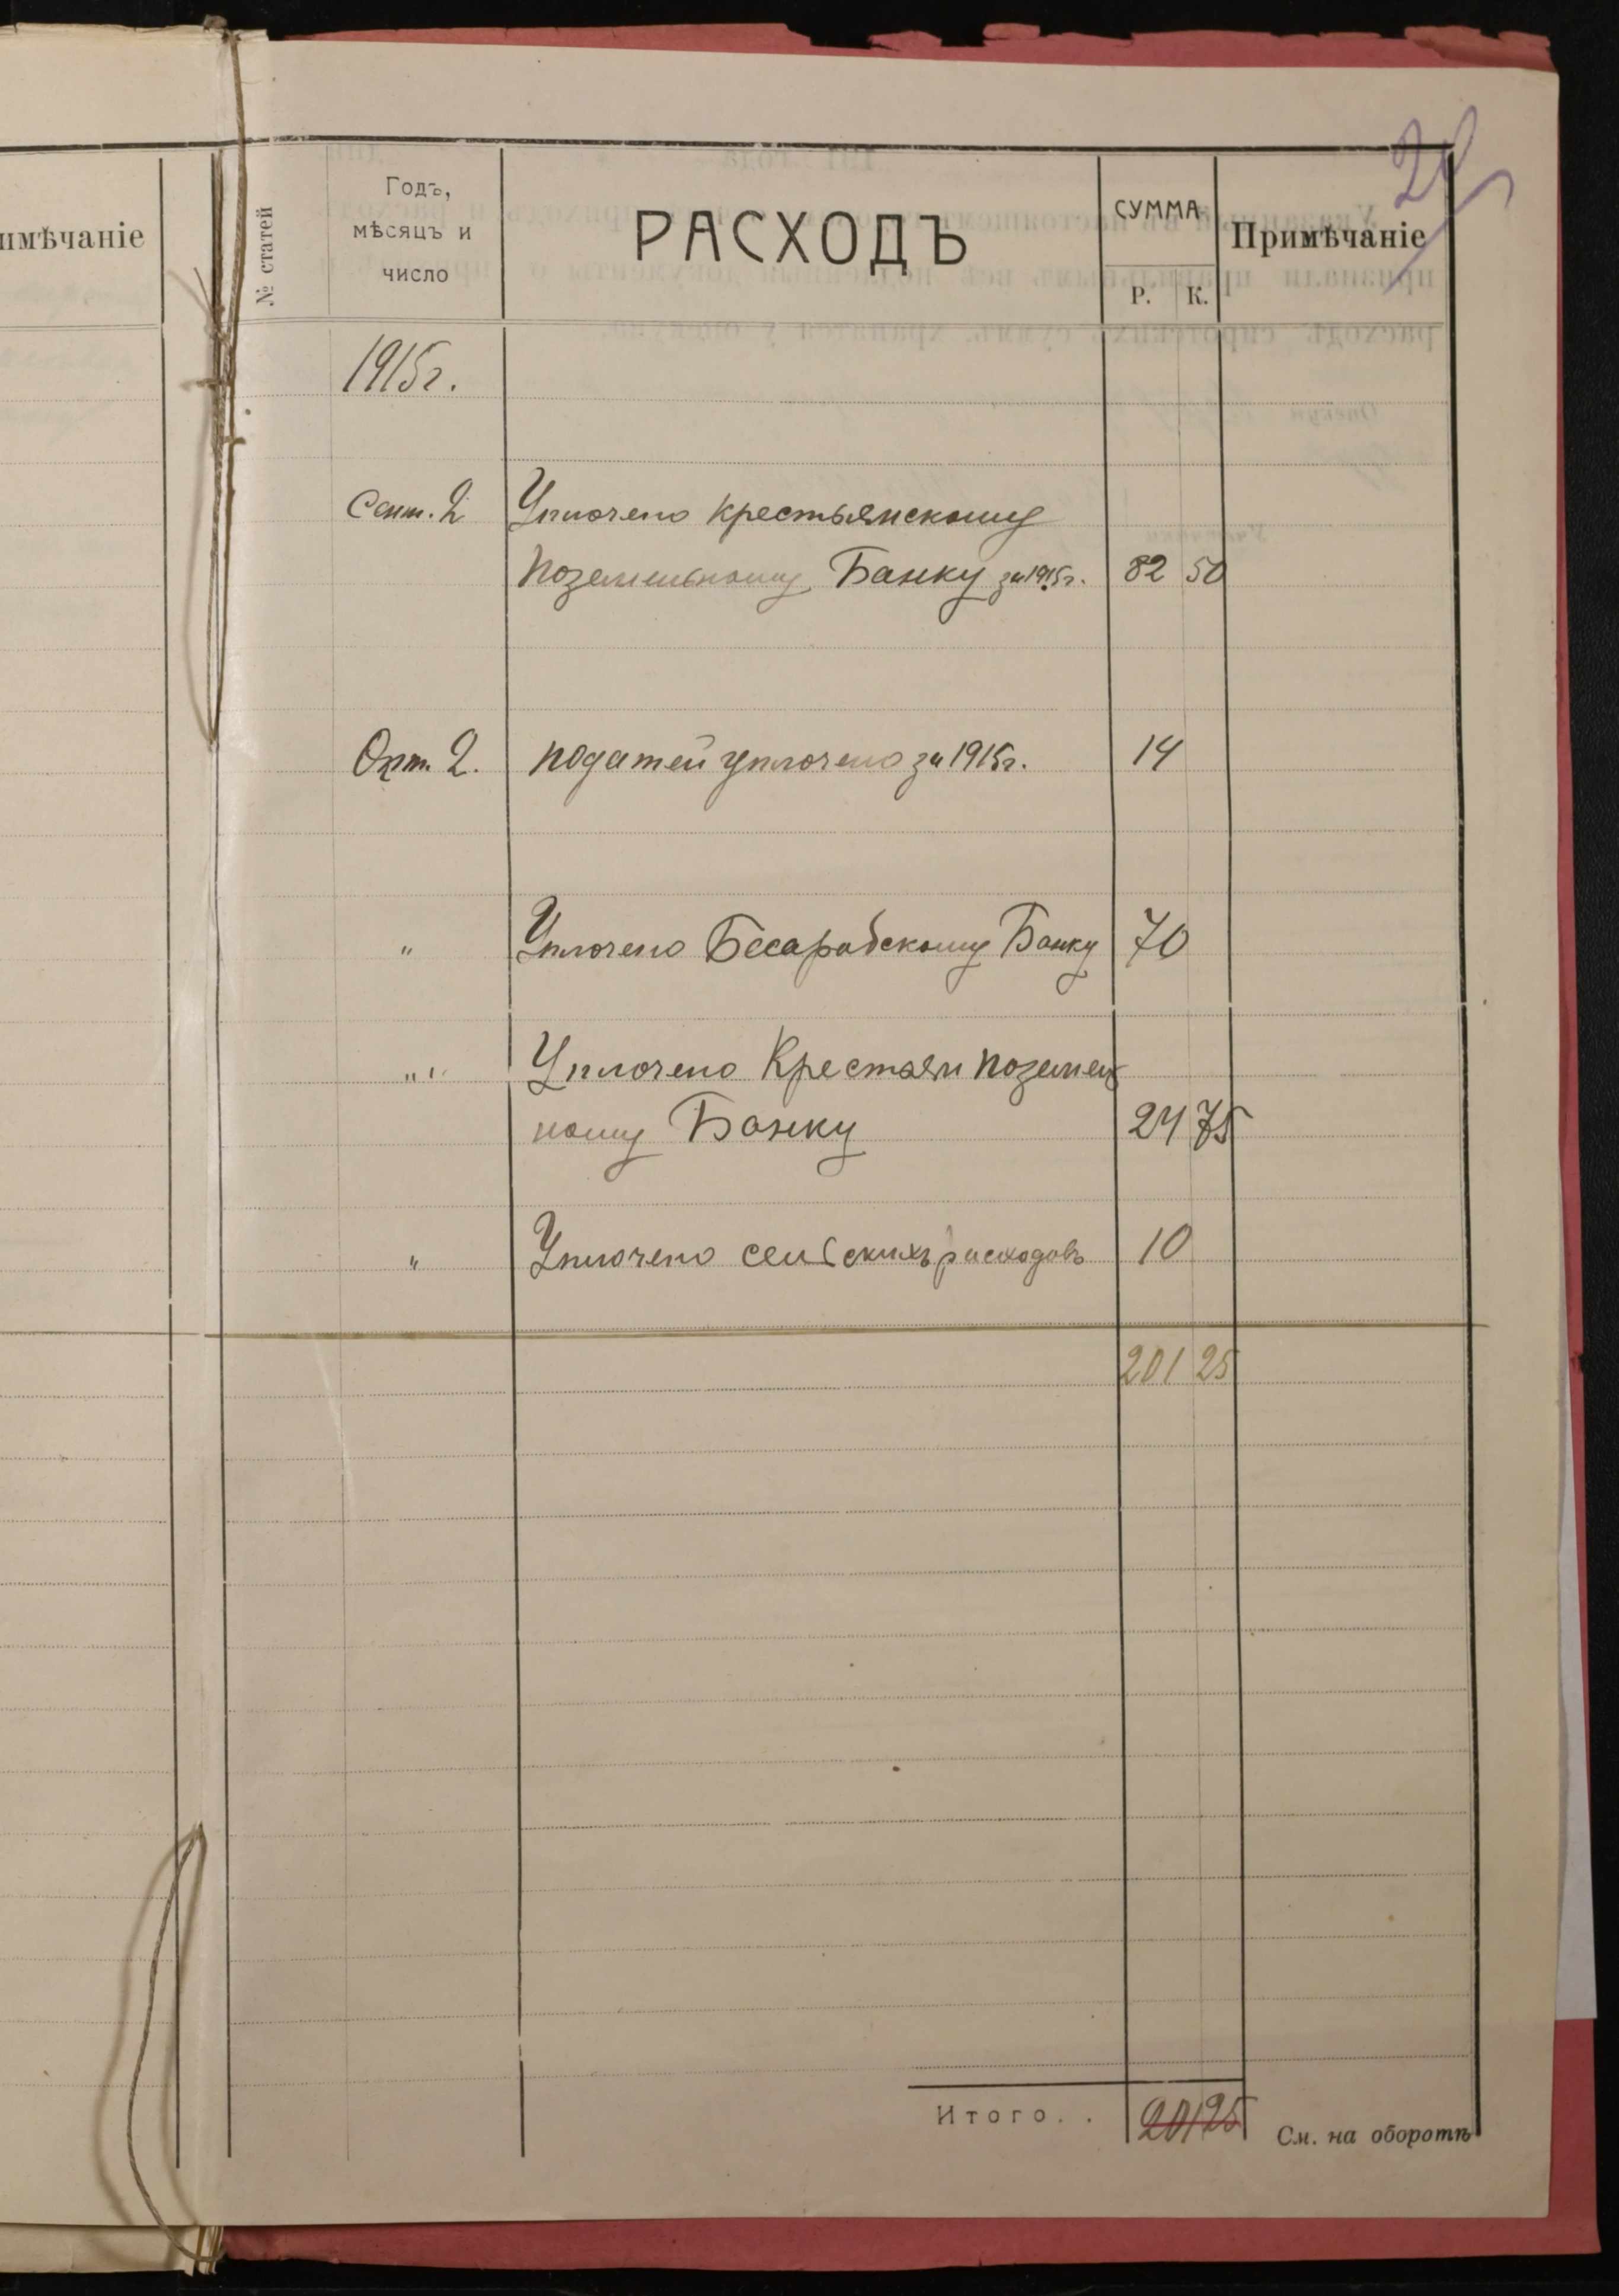 имѣчаніе
№ статей
Годъ,
мѣсяцъ и
число
РАСХОДЪ
СУММА
Р. К.
Примѣчаніе
1915г.
Сент. 2 Уплочено крестьянскому
поземельному Банку за 1915г. 82 50
Окт. 2. податей уплочено за 1915г. 14
" Уплочено Бесарабскому Банку 70
"" Уплочено Крестьян поземель
ному Банку 24 75
" Уплочено сельскихъ расходовъ 10
201 25
Итого. . 201 25 См. на оборотѣ